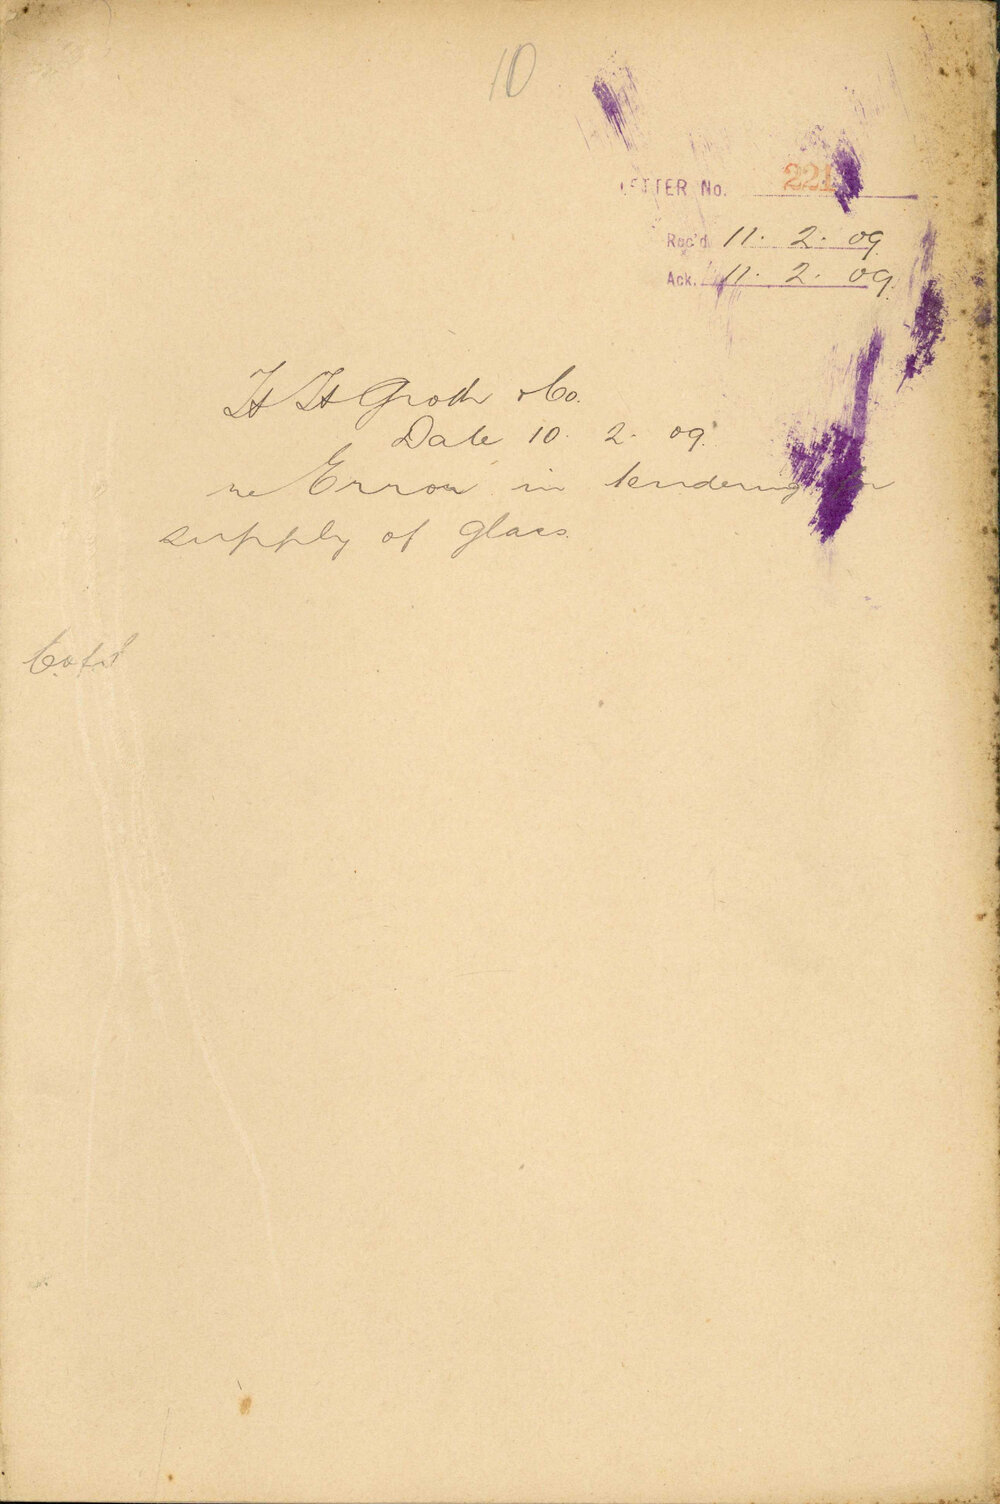 10
LETTER No. 221
Rec'd 11. 2. 09
Ack. 11. 2. 09.
H H Groth & Co.
Date 10. 2. 09.
re Error in tendering for
supply of glass.